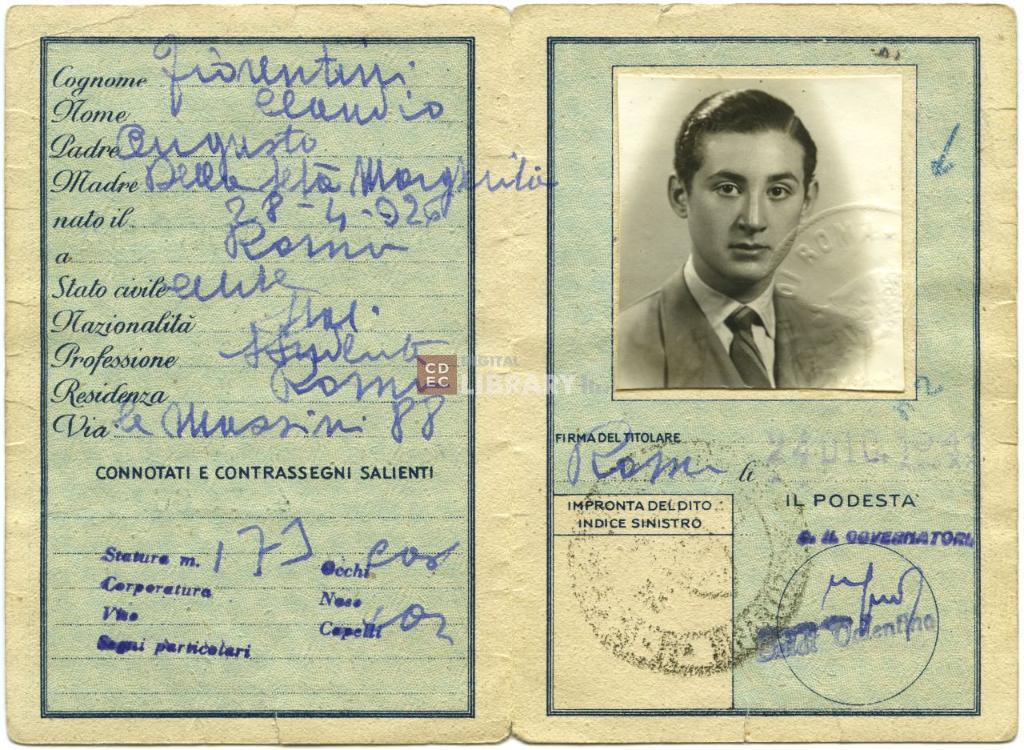 Cognome Fiorentini
Nome Claudio
Padre Augusto
Madre Della Seta Margherita
nato il 28-4-926
a Roma
Stato civile
Nazionalità Ital.
Professione Studente
Residenza Roma
Via Massini 88
CONNOTATI E CONTRASSEGNI SALIENTI
Statura m. 173
Corporatura
Viso
Segni particolari
Occhi cas
Naso
Capelli
CDEC DIGITAL LIBRARY
DI ROMA
FIRMA DEL TITOLARE
Roma li 24 DIC. 1941
IMPRONTA DEL DITO
INDICE SINISTRO
IL PODESTA'
p. IL GOVERNATORE
Valentino